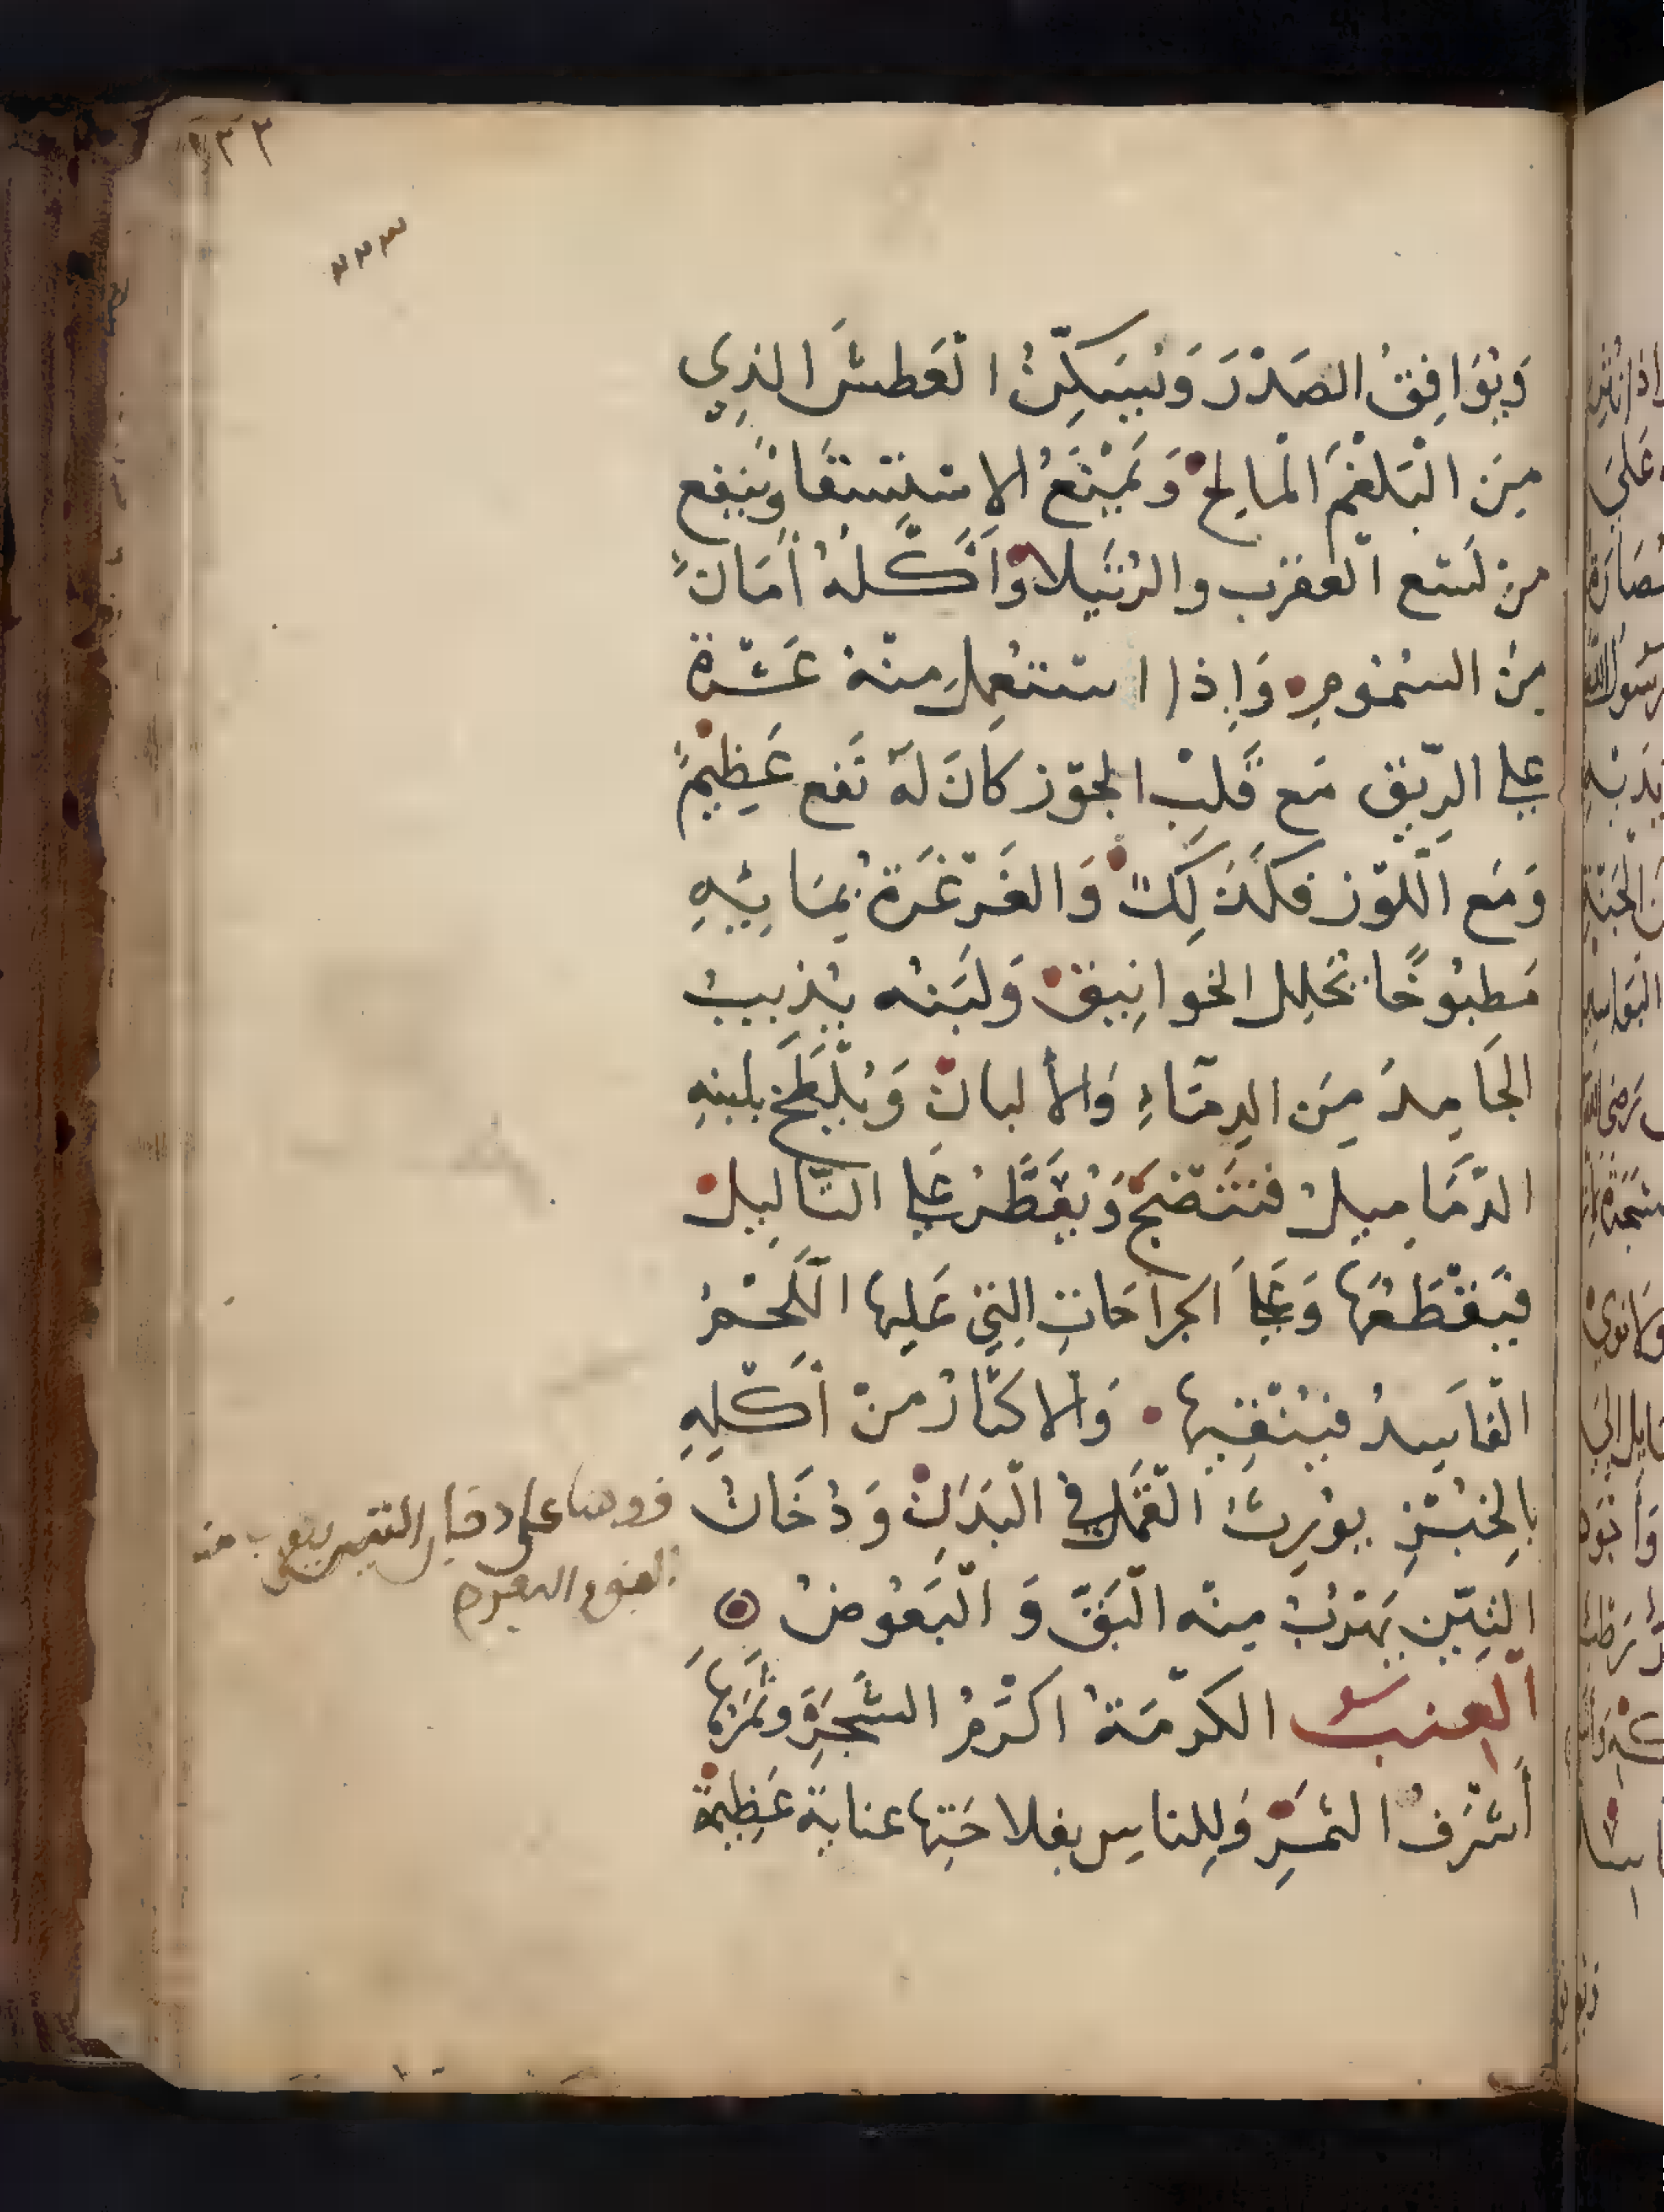 ١٣٣
٢٢٣
وَيُوَافِقُ الصَدْرَ وَيُسَكِّنُ الْعَطشَ الذِي
مِنَ الْبَلغَمِ الْمَالِحْ وَيَمْنَعُ الاستِسْقَا وَيَنفع
من لَسْع الْعقرب والرُتَيلا وَأَكْلُهُ أَمَانٌ
مِنَ السُمُومِ وَإِذا استُعمِلَ مِنْهُ عَشرَة
علي الرِّيق مَع قَلبِ الجَوْز كَانَ لَهُ نَفع عَظِيمٌ
وَمَع اللّوْز فكَذَلِكَ وَالغَرْغَرَةُ بِمَائِهِ
مَطبُوخًا تُحَلِل الخوانِيقَ وَلَبَنُه يُذِيبُ
الجَامِدَ مِنَ الدِمَاءِ وَالأَلبانْ وَيُلْطَخ بلبنهِ
الدّمَامِيلُ فتَنْضَجُ وَيُقَطَّرُ علي الثّآلِيل
فَيَقْطَعُهَا وَعَلي الجرَاحَاتِ التِي عَليهَا اللّحْمُ
الْفَاسِدُ فيُنْقِيها وَالاكثَارُ منْ أَكْلِهِ
بِالخُبْزِ يُورِثُ الْقَمْلَ في الْبَدَنِ وَدُخَانُ
التِيْنِ يَهْرُبُ مِنْه الْبَقّ وَ الْبَعُوضُ
الْعِنب الكَرْمَةُ اكْرَمُ الشَجَرِ وثَمَرُهَا
أَشْرَفُ الثمَرِ وَلِلناسِ بفلاحَتِها عنَايَة عَظِيمَة
على دخان التين يهرب منه
البعوض